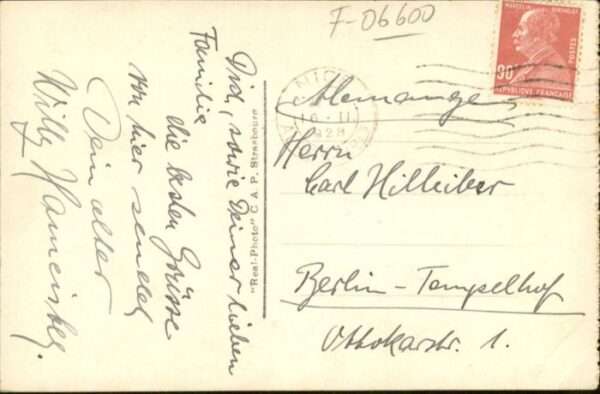 F-06600
MARCELIN BERTHELOT
90
POSTES
REPUBLIQUE FRANÇAISE
NICE
16 - II
28
Allemagne
Herrn
Carl Hilleiber
Berlin-Tempelhof
Ottokarstr. 1.
"Real-Photo" C A P. Strasbourg
Dir, sowie Deiner lieben
Familie
die besten Grüsse
von hier sendet
Dein alter
Willy